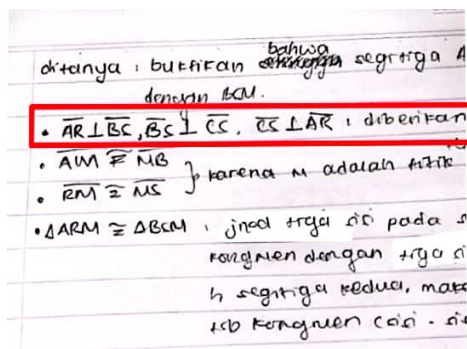 ditanya : buktikan bahwa segitiga A
dengan BCM.
• AR ⊥ BS, BS ⊥ CS, CS ⊥ AR : diberikan
• AM ≅ MB
• RM ≅ MS } karena M adalah titik
• ΔARM ≅ ΔBCM : jnod trga sisi pada s
kongruen dengan tiga si
segitiga kedua, maka
tsb kongruen (sisi - sis